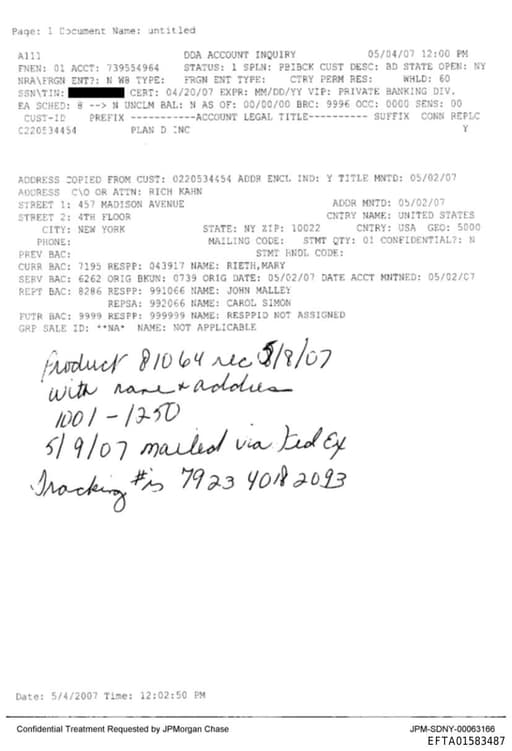 Page: 1 Document Name: untitled
A111 DDA ACCOUNT INQUIRY 05/04/07 12:00 PM
FNEN: 01 ACCT: 739554964 STATUS: 1 SPLN: PBIBCK CUST DESC: BD STATE OPEN: NY
NRA\FRGN ENT?: N W8 TYPE: FRGN ENT TYPE: CTRY PERM RES: WHLD: 60
SSN\TIN: CERT: 04/20/07 EXPR: MM/DD/YY VIP: PRIVATE BANKING DIV.
EA SCHED: 8 --> N UNCLM BAL: N AS OF: 00/00/00 BRC: 9996 OCC: 0000 SENS: 00
CUST-ID PREFIX -----------ACCOUNT LEGAL TITLE---------- SUFFIX CONN REPLC
C220534454 PLAN D INC Y
ADDRESS COPIED FROM CUST: 0220534454 ADDR ENCL IND: Y TITLE MNTD: 05/02/07
ADDRESS C\O OR ATTN: RICH KAHN
STREET 1: 457 MADISON AVENUE ADDR MNTD: 05/02/07
STREET 2: 4TH FLOOR CNTRY NAME: UNITED STATES
CITY: NEW YORK STATE: NY ZIP: 10022 CNTRY: USA GEO: 5000
PHONE: MAILING CODE: STMT QTY: 01 CONFIDENTIAL?: N
PREV BAC: STMT HNDL CODE:
CURR BAC: 7195 RESPP: 043917 NAME: RIETH,MARY
SERV BAC: 6262 ORIG BKUN: 0739 ORIG DATE: 05/02/07 DATE ACCT MNTNED: 05/02/07
REPT BAC: 8286 RESPP: 991066 NAME: JOHN MALLEY
REPSA: 992066 NAME: CAROL SIMON
FUTR BAC: 9999 RESPP: 999999 NAME: RESPPID NOT ASSIGNED
GRP SALE ID: **NA* NAME: NOT APPLICABLE
Product 81064 rec 5/8/07
with name + address
1001 - 1250
5/9/07 mailed via Fed Ex
Tracking # is 7923 4018 2093
Date: 5/4/2007 Time: 12:02:50 PM
Confidential Treatment Requested by JPMorgan Chase JPM-SDNY-00063166
EFTA01583487